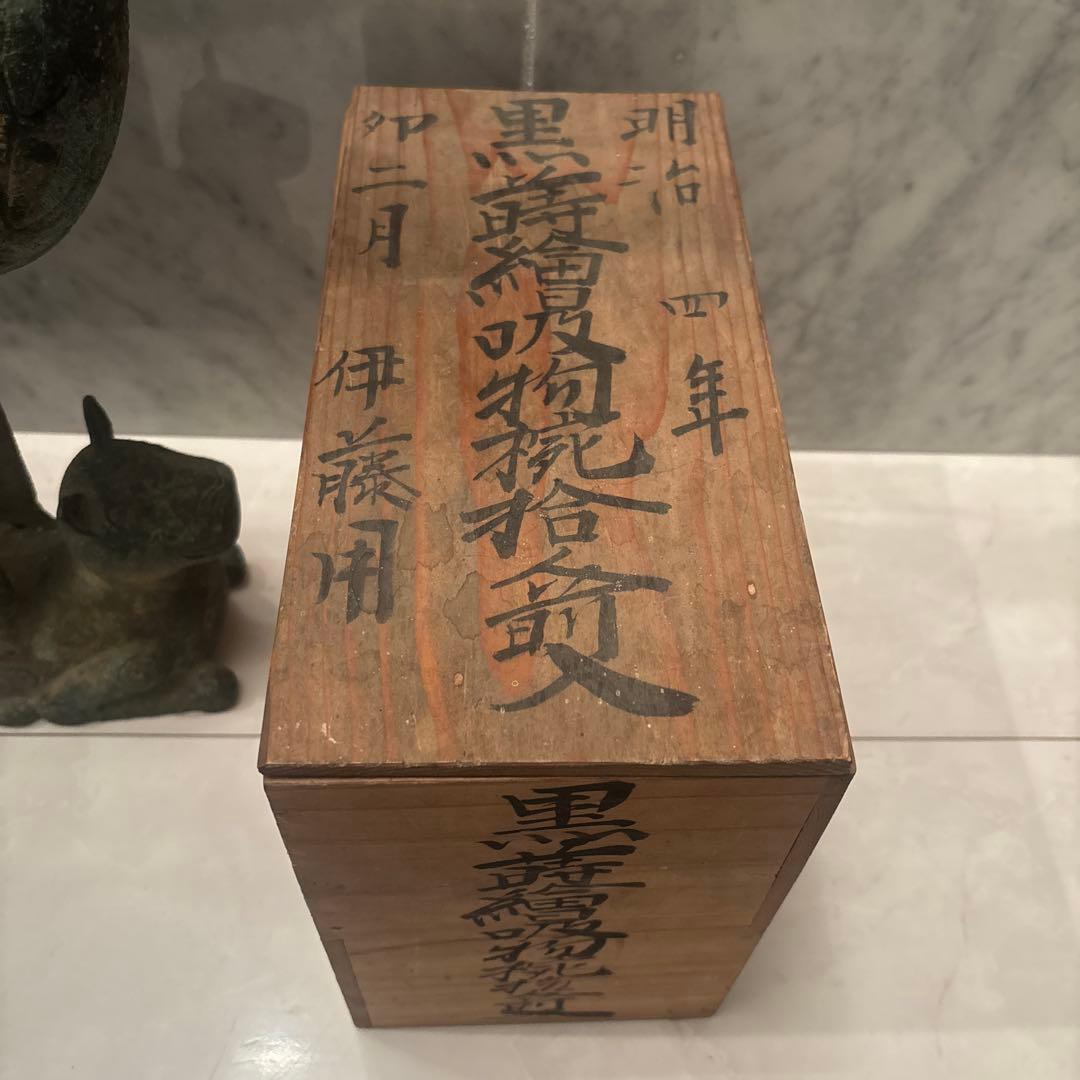 明治四年
黒蒔繪吸物椀拾前入
卯二月
伊藤用
黒蒔繪吸物椀拾前